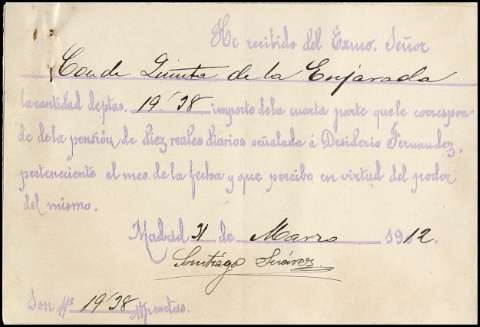 He recibido del Exmo. Señor
Conde Quinta de la Enjarada
la cantidad de ptas. 19'38 importe de la cuarta parte que le correspon-
de de la pensión de diez reales diarios señalada á Desiderio Fernandez,
perteneciente al mes de la fecha y que percibo en virtud del poder
del mismo.
Madrid 31 de Marzo 1912.
Santiago Suárez
Son Ptas 19'38 pesetas.